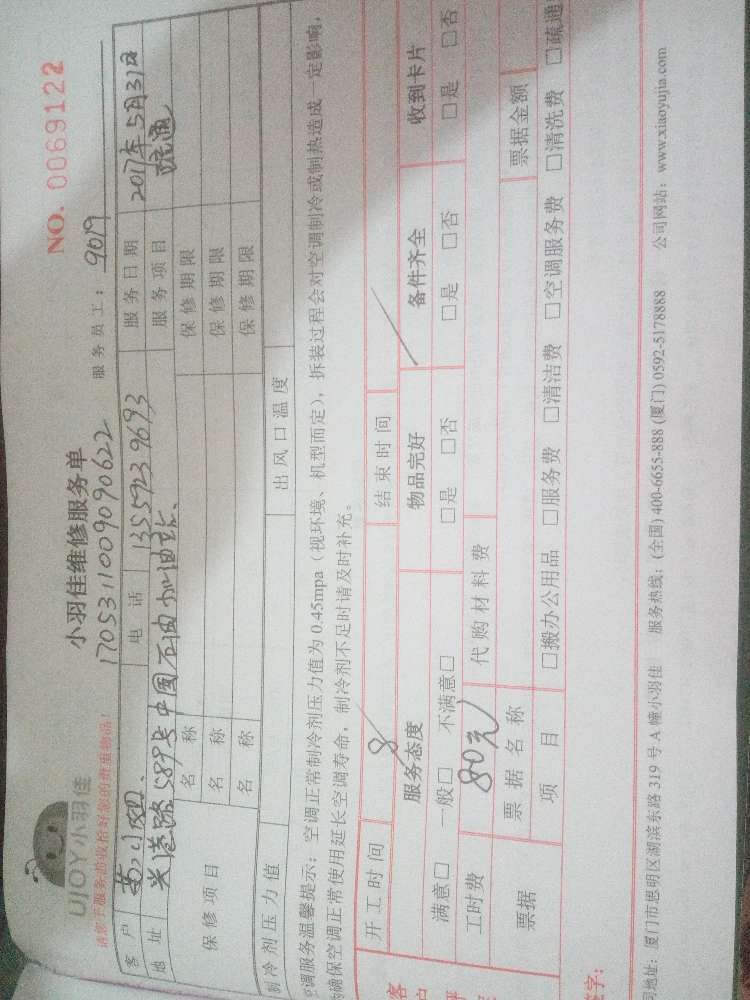 UJOY小羽佳
请您于服务前收拾好您的贵重物品!
小羽佳维修服务单
NO. 0069122
1705311009090622
服务员工: 9019
客户
电话 13559239693
服务日期 2017年5月31日
地址 589号中国石油加油站.
服务项目 疏通
保修项目
名称 保修期限
名称 保修期限
名称 保修期限
制冷剂压力值 出风口温度
空调服务温馨提示: 空调正常制冷剂压力值为0.45mpa(视环境、机型而定), 拆装过程会对空调制冷或制热造成一定影响,
为确保空调正常使用延长空调寿命, 制冷剂不足时请及时补充。
开工时间 结束时间
客户
服务态度 物品完好 备件齐全 收到卡片
满意□ 一般□ 不满意□ □是 □否 □是 □否 □是 □否
工时费 80元 代购材料费
票据 票据名称 票据金额
项目 □搬办公用品 □服务费 □清洁费 □空调服务费 □清洗费 □疏通
签字:
地址: 厦门市思明区湖滨东路319号A幢小羽佳 服务热线: (全国) 400-6655-888 (厦门) 0592-5178888 公司网站: www.xiaoyujia.com